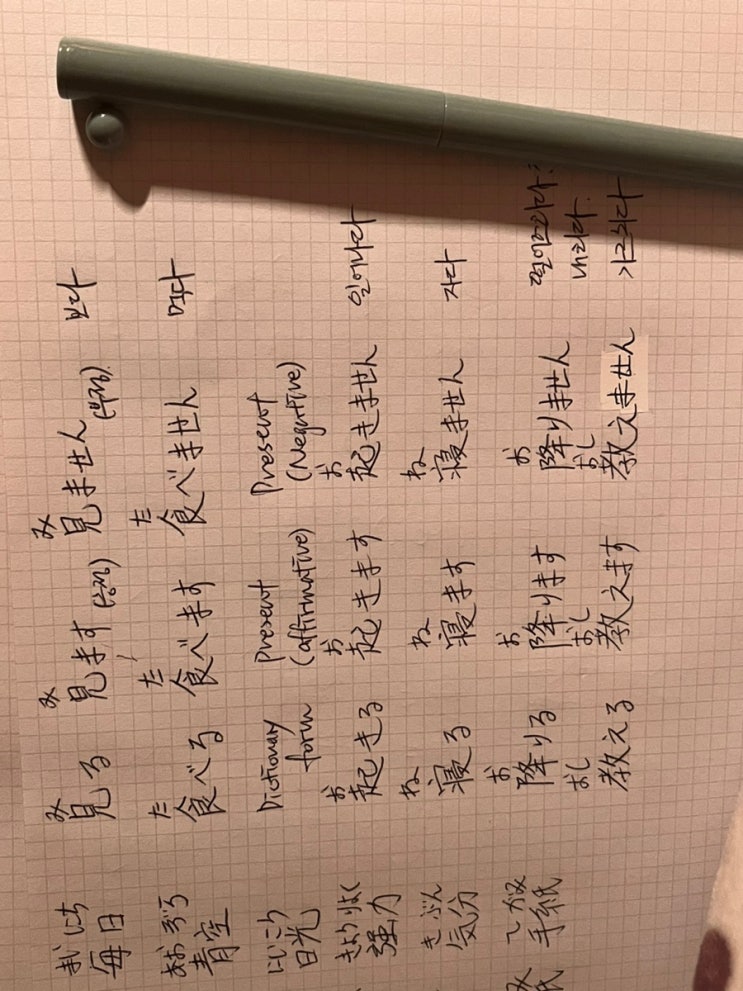 まいにち み み み
毎日 見る 見ます (긍정) 見ません (부정) 보다
あおぞら た た た
青空 食べる 食べます 食べません 먹다
Dictionary Present Present
日光 form (affirmative) (Negative)
きょうりょく お お お
強力 起きる 起きます 起きません 일어나다
きぶん ね ね ね
気分 寝る 寝ます 寝ません 자다
み てがみ お お お
紙 手紙 降りる 降ります 降りません 내리다.
おし おし おし
教える 教えます 教えません 가르치다